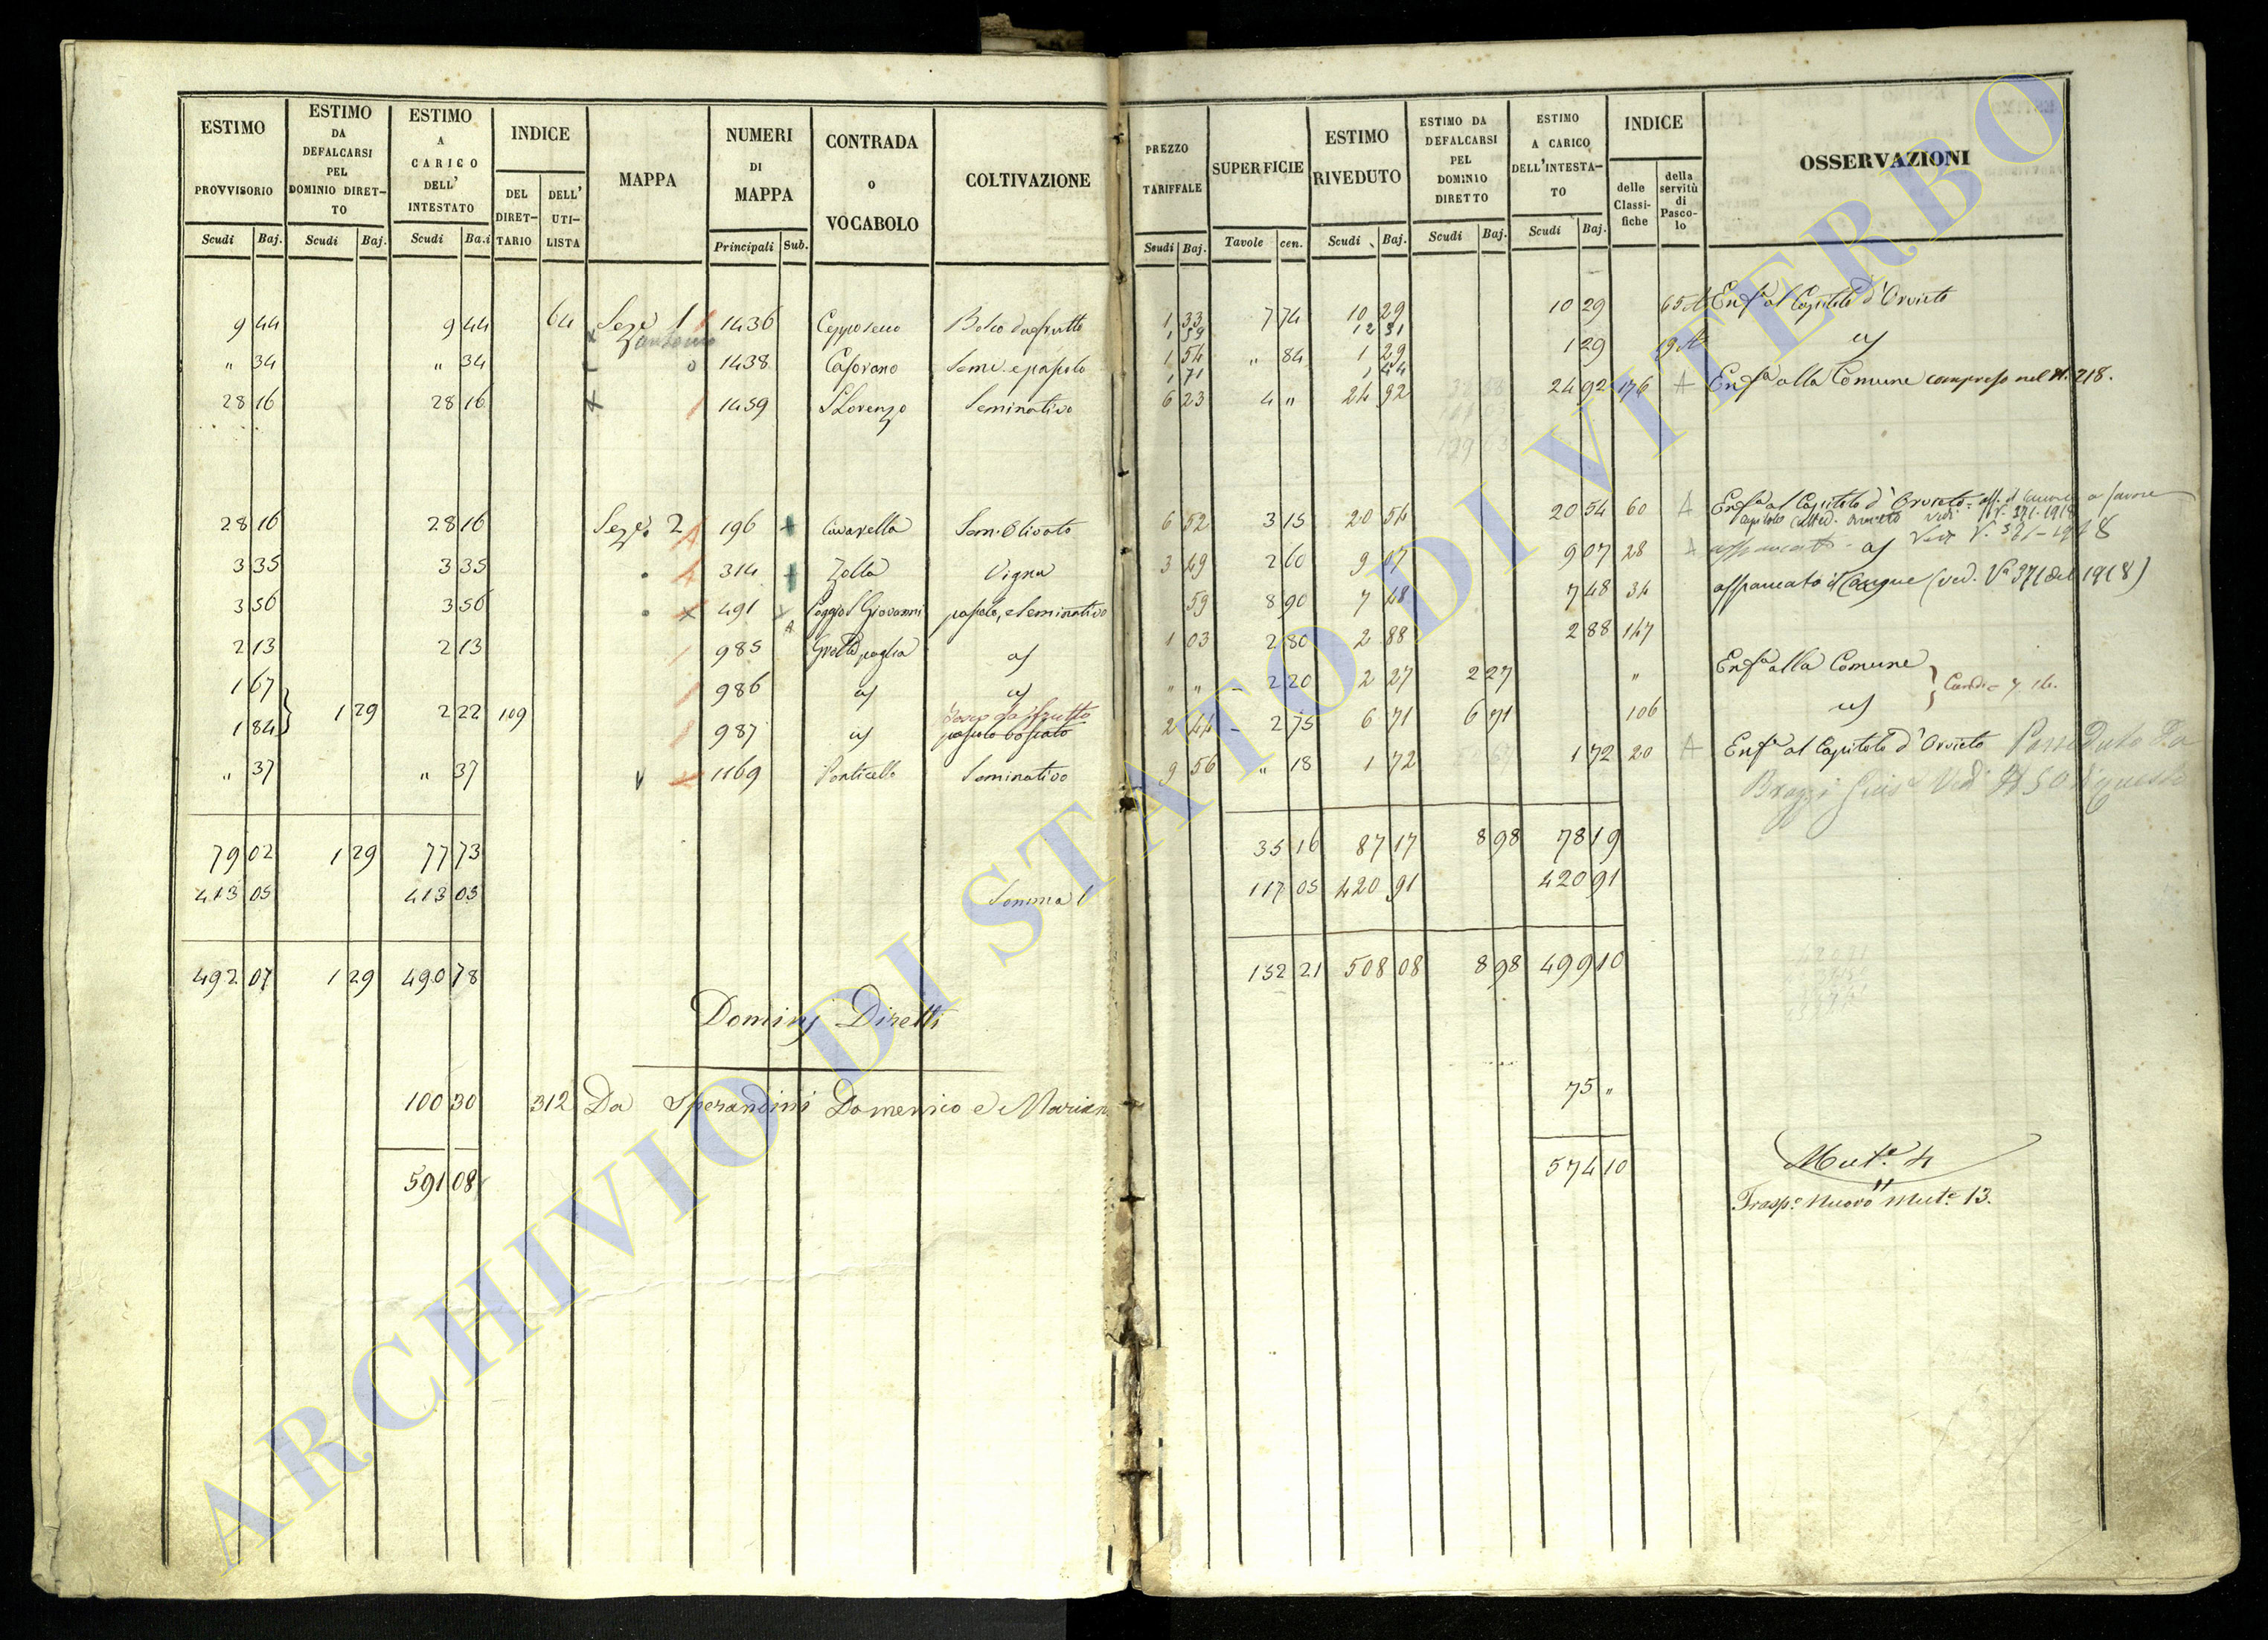 ESTIMO PROVVISORIO Scudi Baj.
ESTIMO DA DEFALCARSI PEL DOMINIO DIRETTO Scudi Baj.
ESTIMO A CARICO DELL' INTESTATO Scudi Ba.i
INDICE DEL DIRETTARIO DELL' UTILISTA
MAPPA
NUMERI DI MAPPA Principali Sub.
CONTRADA O VOCABOLO
COLTIVAZIONE
PREZZO TARIFFALE Scudi Baj.
SUPERFICIE Tavole cen.
ESTIMO RIVEDUTO Scudi Baj.
ESTIMO DA DEFALCARSI PEL DOMINIO DIRETTO Scudi Baj.
ESTIMO A CARICO DELL'INTESTATO Scudi Baj.
INDICE delle Classifiche della servitù di Pascolo
OSSERVAZIONI
9 44 9 44 64 Seze 1 1436 1 33 7 74 10 29 10 29 Enfa al Capitolo d'Orvieto
1 59 12 31
" 34 " 34 1438 1 54 " 84 1 29 1 29
1 71 1 44
28 16 28 16 1459 S Lorenzo Seminativo 6 23 4 " 24 92 24 92 176 A Enfa alla Comune compreso nel N. 218.
28 16 28 16 Seze 2 196 Sem. Olivato 6 52 3 15 20 54 20 54 60 A Enfa al Capitolo d'Orvieto
3 35 3 35 314 Zolla Vigna 3 49 2 60 9 07 9 07 28 A
3 56 3 56 491 Poggio S Giovanni pascolo, e Seminativo 59 8 90 7 48 7 48 34 affrancato il Canone (ved. Va 371 del 1918)
2 13 2 13 985 1 03 2 80 2 88 2 88 147
1 67 986 " " 2 20 2 27 2 27 " Enfa alla Comune
1 84 1 29 2 22 109 987 bosco da frutto pascolo boscato 2 44 2 75 6 71 6 71 106
" 37 " 37 1169 Ponticello Seminativo 9 56 " 18 1 72 1 72 20 A Enfa al Capitolo d'Orvieto Posseduto da
79 02 1 29 77 73 35 16 87 17 8 98 78 19
413 05 413 05 Somma 1 117 05 420 91 420 91
492 07 1 29 490 78 152 21 508 08 8 98 499 10
Dominj Diretti
100 30 312 Da Sperandini Domenico e Marian 75 "
591 08 574 10
Muta. 4
Traspo. Nuovo Muta 13.
ARCHIVIO DI STATO DI VITERBO